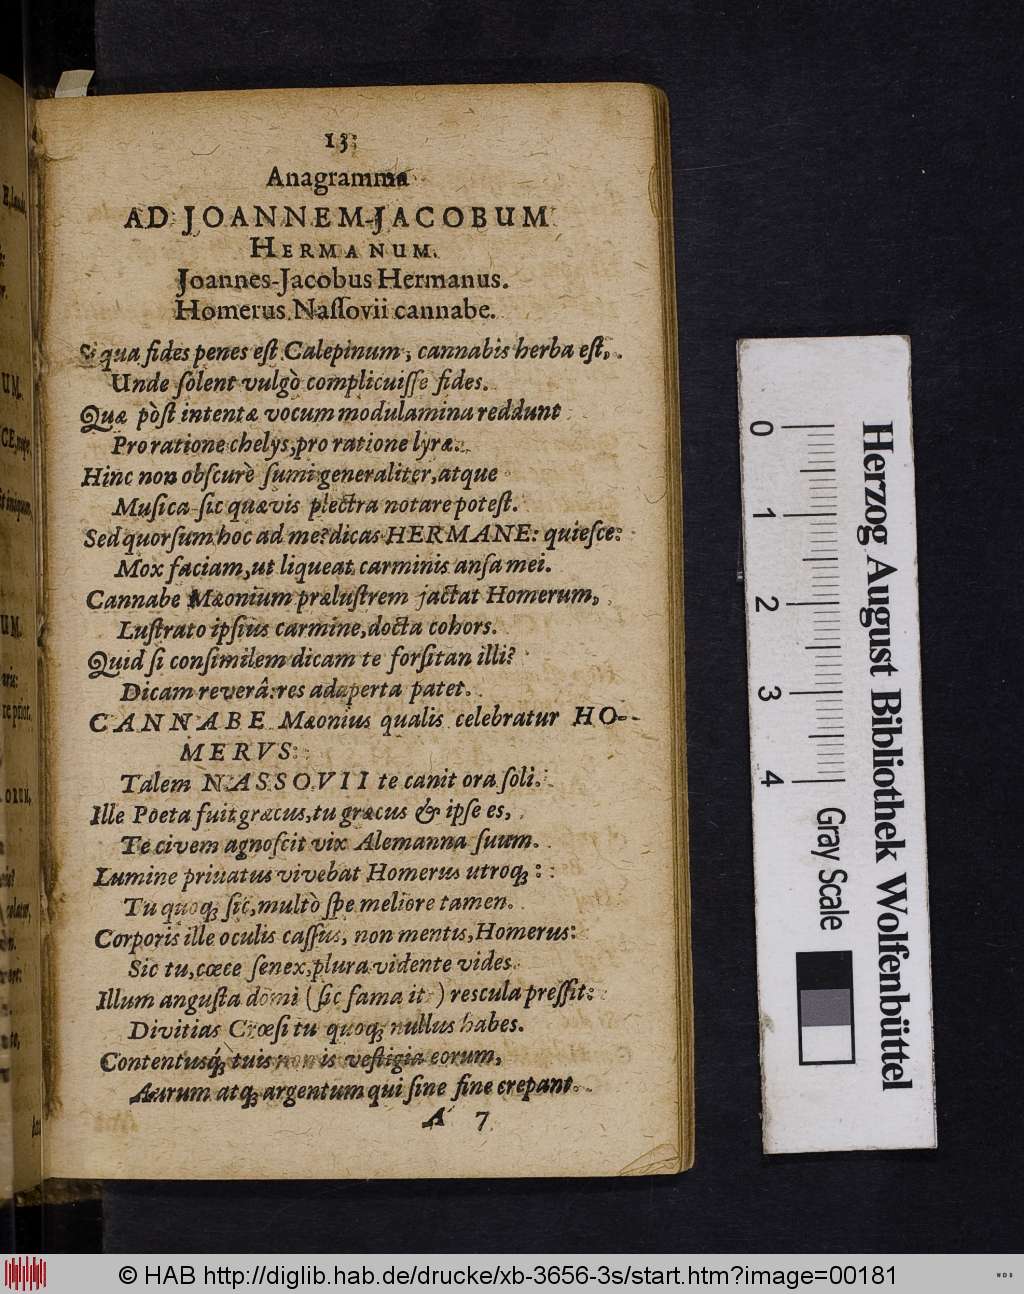 13:
Anagramma
AD JOANNEM-JACOBUM
HERMANUM.
Joannes-Jacobus Hermanus.
Homerus Naſſovii cannabe.
Si qua fides penes eſt Calepinum, cannabis herba eſt,
Unde ſolent vulgò complicuiſſe fides.
Quæ pòſt intentæ vocum modulamina reddunt
Pro ratione chelys, pro ratione lyræ.
Hinc non obſcurè ſumi generaliter, atque
Muſica ſic quævis plectra notare poteſt.
Sed quorſum hoc ad me? dicas HERMANE: quieſce:
Mox faciam, ut liqueat carminis anſa mei.
Cannabe Mæonium præluſtrem jactat Homerum,
Luſtrato ipſius carmine, docta cohors.
Quid ſi conſimilem dicam te forſitan illi?
Dicam reverâ: res adaperta patet.
CANNABE Mæonius qualis celebratur HO-
MERVS:
Talem NASSOVII te canit ora ſoli.
Ille Poeta fuit græcus, tu græcus & ipſe es,
Te civem agnoſcit vix Alemanna ſuum.
Lumine privatus vivebat Homerus utroq;:
Tu quoq; ſic, multò ſpe meliore tamen.
Corporis ille oculis caſſus, non mentis, Homerus:
Sic tu, cœce ſenex, plura vidente vides.
Illum anguſta domi (ſic fama it) reſcula preſſit:
Divitias Crœſi tu quoq; nullus habes.
Contentusq́; tuis non is veſtigia eorum,
Aurum atq; argentum qui ſine fine crepant.
A 7
0 1 2 3 4
Gray Scale
Herzog August Bibliothek Wolfenbüttel
© HAB http://diglib.hab.de/drucke/xb-3656-3s/start.htm?image=00181